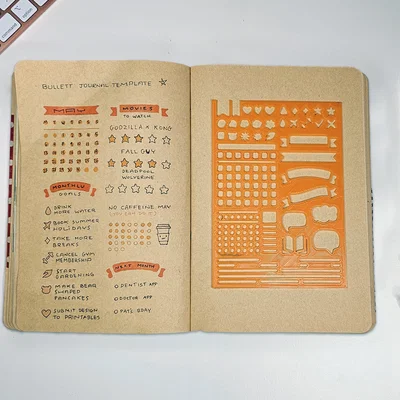 BULLETT JOURNAL TEMPLATE
MAY
MOVIES
TO WATCH
GODZILLA X KONG
FALL GUY
DEADPOOL
WOLVERINE
MONTHLY
GOALS
DRINK
MORE WATER
BOOK SUMMER
HOLIDAYS
TAKE MORE
BREAKS
CANCEL GYM
MEMBERSHIP
START
GARDENING
MAKE BEAR
SHAPED
PANCAKES
SUBMIT DESIGN
TO PRINTABLES
NO CAFFEINE MAY
NEXT MONTH
DENTIST APP
DOCTOR APP
option
command